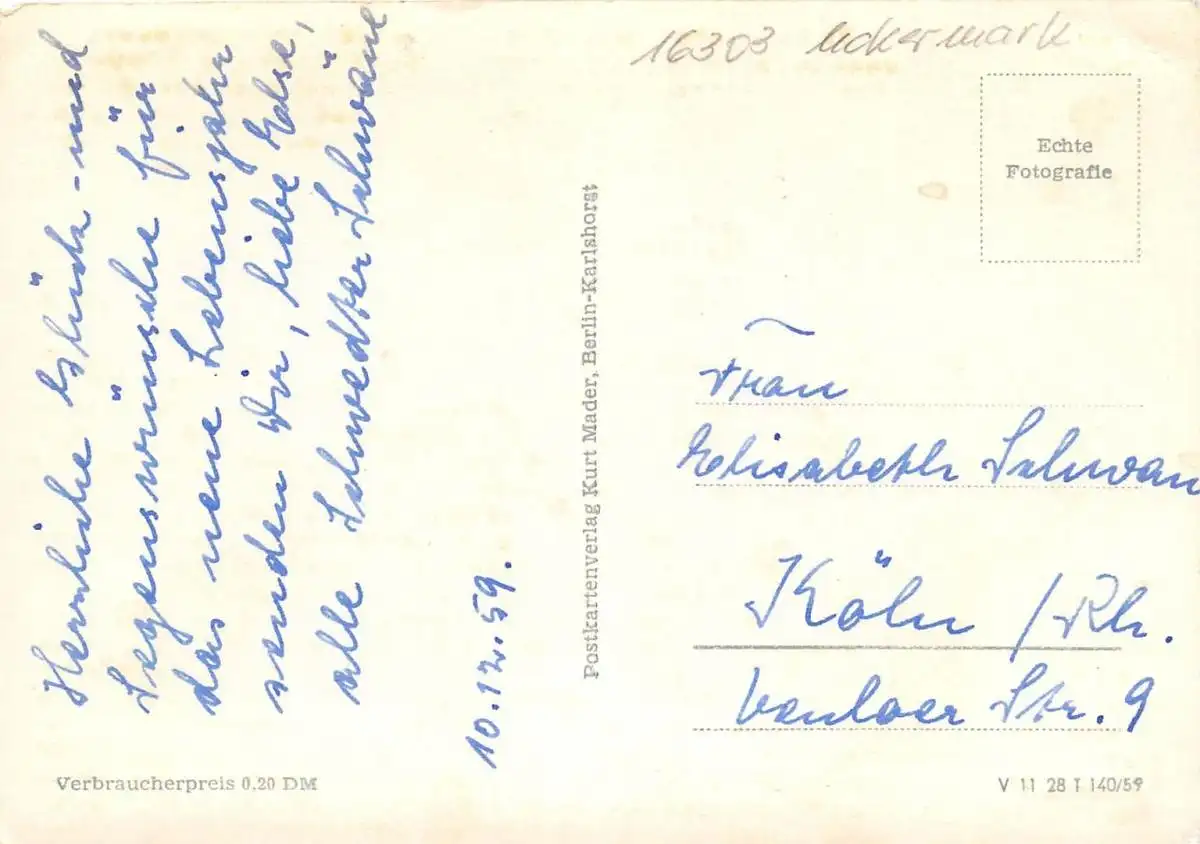 16303 Uckermark
Echte
Fotografie
Herzliche Glück- und
Segenswünsche für
das neue Lebensjahr
senden Dir, liebe Else,
alle Schwedter Schwäne
10.12.59.
Postkartenverlag Kurt Mader, Berlin-Karlshorst
Frau
Elisabeth Schwan
Köln /Rh.
Venloer Str. 9
Verbraucherpreis 0,20 DM
V 11 28 T 140/59